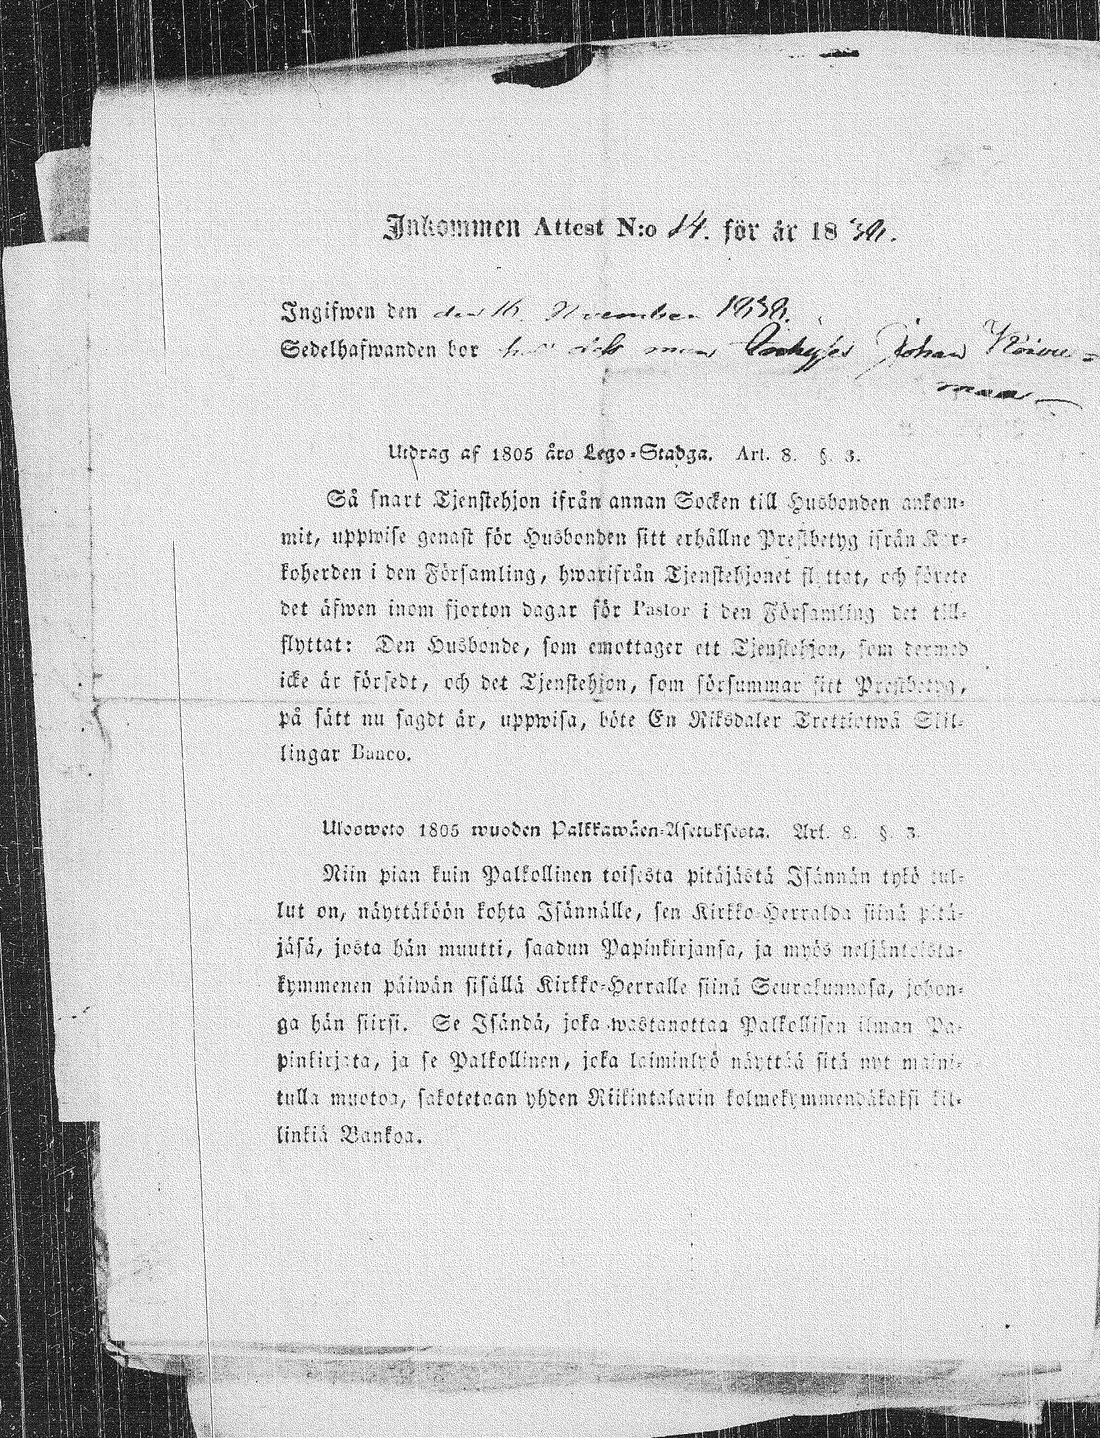 Inkommen Attest N:o 14. för år 18
Ingifwen den den 16. November 1838.
Sedelhafwanden bor hos Johan
maa
Utdrag af 1805 års Lego-Stadga. Art. 8. §. 3.
Så snart Tjenstehjon ifrån annan Socken till Husbonden ankom-
mit, uppwise genast för Husbonden sitt erhållne Prestbetyg ifrån Kyr-
koherden i den Församling, hwarifrån Tjenstehjonet flyttat, och förete
det äfwen inom fjorton dagar för Pastor i den Församling det till-
flyttat: Den Husbonde, som emottager ett Tjenstehjon, som dermed
icke är försedt, och det Tjenstehjon, som försummar sitt Prestbetyg,
på sätt nu sagdt är, uppwisa, böte En Riksdaler Trettiotwå Skil-
lingar Banco.
Ulosweto 1805 wuoden Palkkawäen-Asetuksesta. Art. 8. §. 3.
Niin pian kuin Palkollinen toisesta pitäjästä Isännän tykö tul-
lut on, näyttäköön kohta Isännälle, sen Kirkko-Herralda siinä pitä-
jäsä, josta hän muutti, saadun Papinkirjansa, ja myös neljäntoista-
kymmenen päiwän sisällä Kirkko-Herralle siinä Seurakunnasa, johon-
ga hän siirsi. Se Isändä, joka wastanottaa Palkollisen ilman Pa-
pinkirjata, ja se Palkollinen, joka laiminlyö näyttää sitä nyt maini-
tulla muotoa, sakotetaan yhden Riikintalarin kolmekymmendäkaksi kil-
linkiä Bankoa.